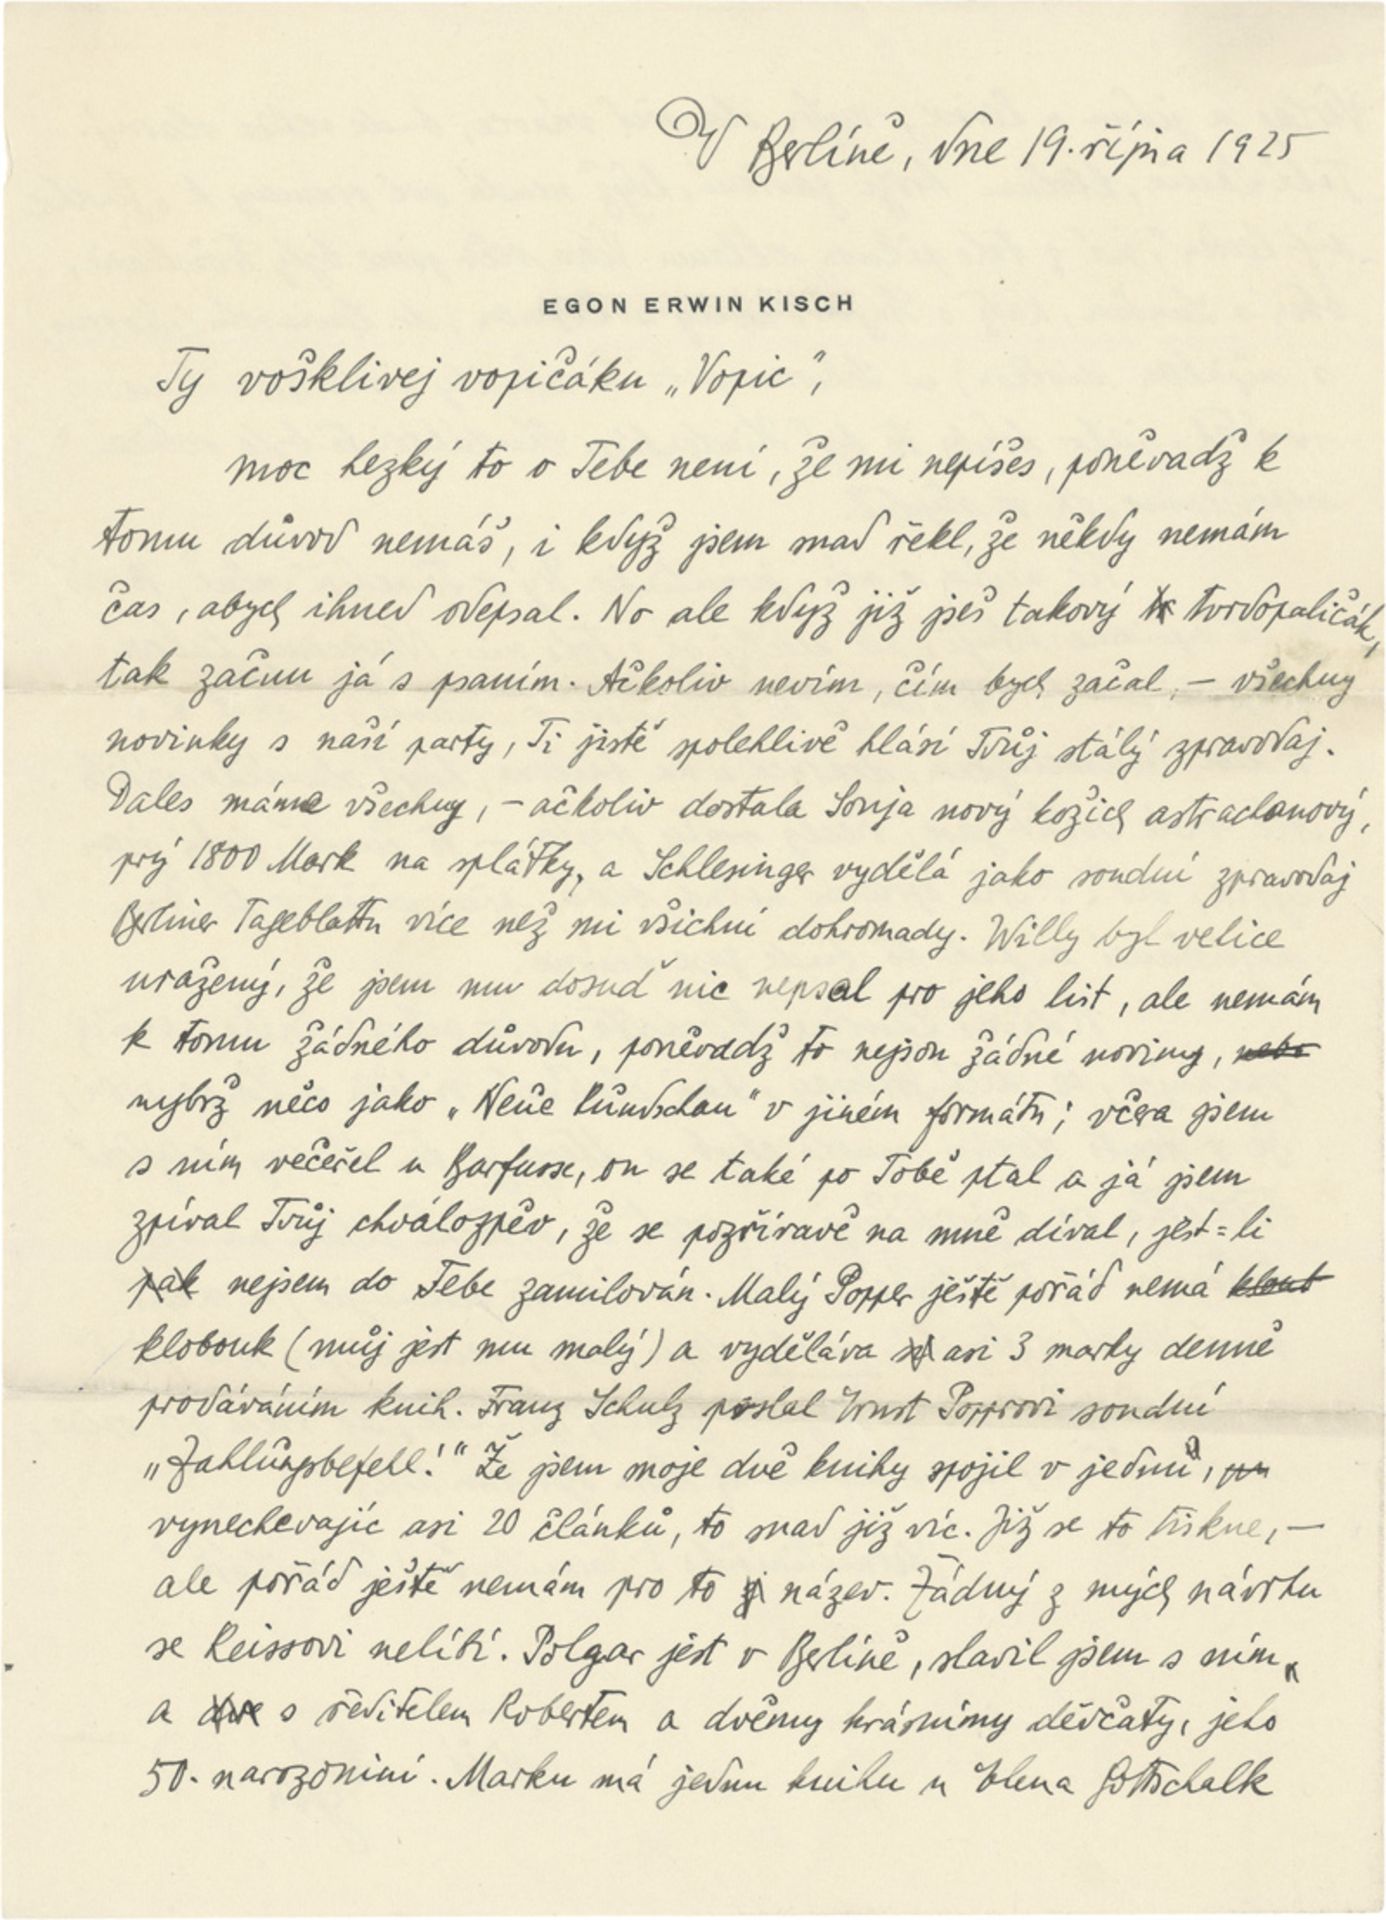 V Berlíně, dne 19. října 1925
EGON ERWIN KISCH
Ty vošklivej vopičáku „Vopic“,
moc hezký to o Tebe není, že mi nepíšes, poněvadž k
tomu důvod nemáš, i když jsem snad řekl, že někdy nemám
čas, abych ihned odepsal. No ale když již jseš takový tvrdopaličák,
tak začnu já s psaním. Ačkoliv nevím, čím bych začal, – všechny
novinky s naší party, Ti jistě spolehlivě hlásí Tvůj stálý zpravodaj.
Dales máme všechny, – ačkoliv dostala Sonja nový kožich astrachanový,
prý 1800 Mark na splátky, a Schlesinger vydělá jako soudní zpravodaj
Berliner Tageblattu více než mi všichni dohromady. Willy byl velice
uražený, že jsem mu dosud nic nepsal pro jeho list, ale nemám
k tomu žádného důvodu, poněvadž to nejsou žádné noviny, nebo
nybrž něco jako „Neue Rundschau“ v jiném formátu; včera jsem
s ním večeřel u Barfusse, on se také po Tobě ptal a já jsem
zpíval Tvůj chválozpěv, že se pozříravě na mně díval, jest=li
pak nejsem do Tebe zamilován. Malý Popper ještě pořád nemá klout
klobouk (můj jest mu malý) a vyděláva asi 3 marky denně
prodáváním knih. Franz Schulz poslal Ernst Popprovi soudní
„Zahlungsbefehl!“ Že jsem moje dvě knihy spojil v jednu,
vynechevajíc asi 20 článků, to snad již víc. Již se to tiskne, –
ale pořád ještě nemám pro to název. Žádný z mých návrhu
se Reissovi nelíbí. Polgar jest v Berlíně, slavil jsem s ním,
a s ředitelem Robertem a dvěmy krásnimy děvčaty, jeho
50. narozonini. Marku má jednu knihu u Elena Gottschalk